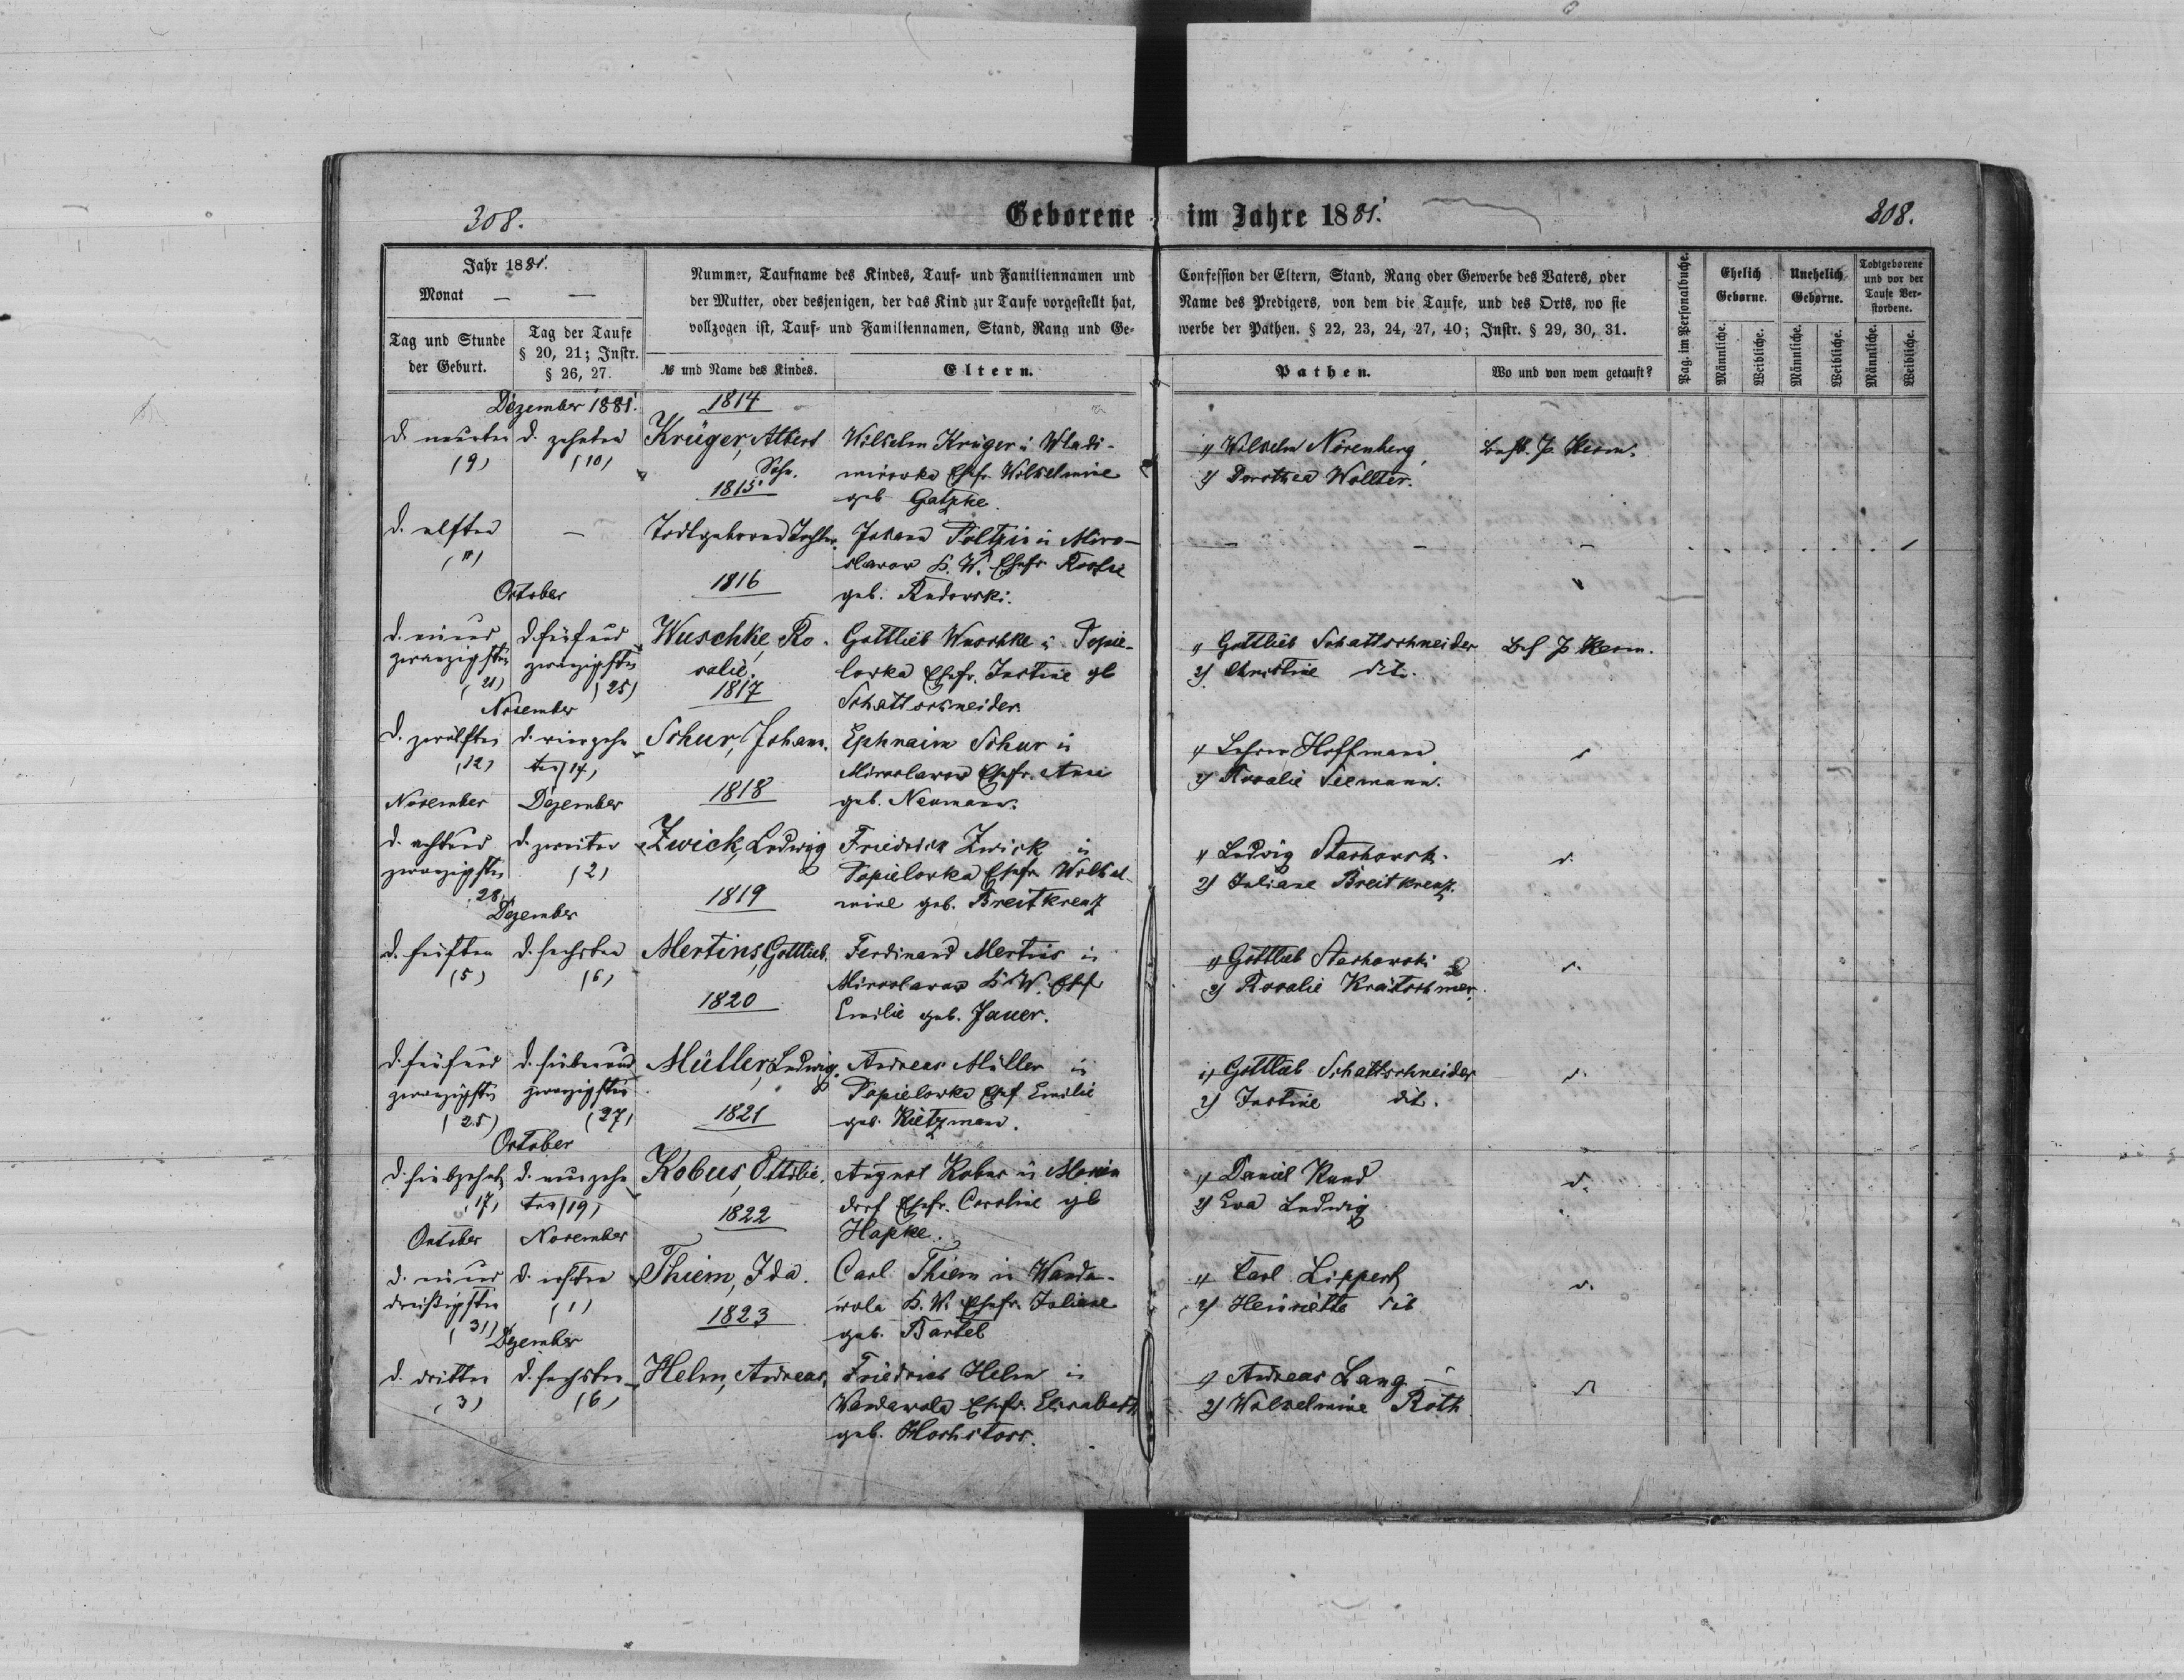 308.
Geborene im Jahre 1881.
308.
Jahr 1881.
Monat — —
Tag und Stunde der Geburt.
Tag der Taufe § 20, 21; Instr. § 26, 27.
Nummer, Taufname des Kindes, Tauf- und Familiennamen und
der Mutter, oder desjenigen, der das Kind zur Taufe vorgestellt hat,
vollzogen ist, Tauf- und Familiennamen, Stand, Rang und Ge-
№ und Name des Kindes.
Eltern.
Confession der Eltern, Stand, Rang oder Gewerbe des Vaters, oder
Name des Predigers, von dem die Taufe, und des Orts, wo sie
werbe der Pathen. § 22, 23, 24, 27, 40; Instr. § 29, 30, 31.
Pathen.
Wo und von wem getauft?
Pag. im Personalbuche.
Ehelich Geborne.
Unehelich Geborne.
Todtgeborene und vor der Taufe Verstorbene.
Männliche.
Weibliche.
Männliche.
Weibliche.
Männliche.
Weibliche.
Dezember 1881.
1814
d. neunten (9)
d. zehnten (10)
Krüger, Albert
Sohn.
Wilhelm Krüger in Wladi-
mirowka Ehefr. Wilhelmine
geb. Gatzke.
1) Wilhelm Nörenberg
2) Dorothea Wollter.
1815
d. elften (11)
—
Todtgeborene Tochter.
Johann Poltzin in Miro-
slawow K. W. Ehefr.
geb. Radowski.
1816
October
d. einund
zwanzigsten
(21)
d. fünfund
zwanzigsten
(25)
Wuschke, Ro-
salie.
Gottlieb Wuschke in Popie-
lowka Ehefr. Justine gb
Schattschneider.
1) Gottlieb Schattschneider
2) Christine dito.
1817
November
d. zwölften
(12)
d. vierzehn
ten (14)
Schur, Johann.
Ephraim Schur in
Miroslawow Ehefr. Anne
geb. Neumann.
1) Lehrer Hoffmann
2) Rosalie Seemann.
1818
November
Dezember
d. achtund
zwanzigsten
28
d. zweiten
(2)
Zwick, Ludwig
Friedrich Zwick in
Popielowka Ehefr. Wilhel-
mine geb. Breitkreuz
1) Ludwig Stachowski
2) Juliane Breitkreuz.
1819
Dezember
d. fünften
(5)
d. sechsten
(6)
Mertins, Gottlieb.
Ferdinand Mertins in
Miroslawow K. W. Ehef
Emilie geb. Jauer.
1) Gottlieb Stachowski
2) Rosalie Kraitschmer.
1820
d. fünfund
zwanzigsten
(25)
d. siebenund
zwanzigsten
(27)
Müller, Ludwig.
Andreas Müller in
Popielowka Ehef Emilie
geb. Rietzmann.
1) Gottlieb Schattschneider
2) Justine dit.
1821
October
d. siebzehnt
17,
d. neunzehn
ten (19)
Kobus, Ottilie.
August Kobus in Marien
dorf Ehefr. Caroline gb
Hapke.
1) Daniel Rund
2) Eva Ludwig
1822
October
November
d. einund
dreißigsten
(31)
d. ersten
(1)
Thiem, Ida.
Carl Thiem in Wanda-
wola K. W. Ehefr. Juliane
geb. Bartel
1) Carl Lippert
2) Henriette dit
1823
Dezember
d. dritten
(3)
d. sechsten
(6)
Helm, Andreas,
Friedrich Helm in
Wandawola Ehefr. Elisabeth
geb.
1) Andreas Lang
2) Wilhelmine Roth